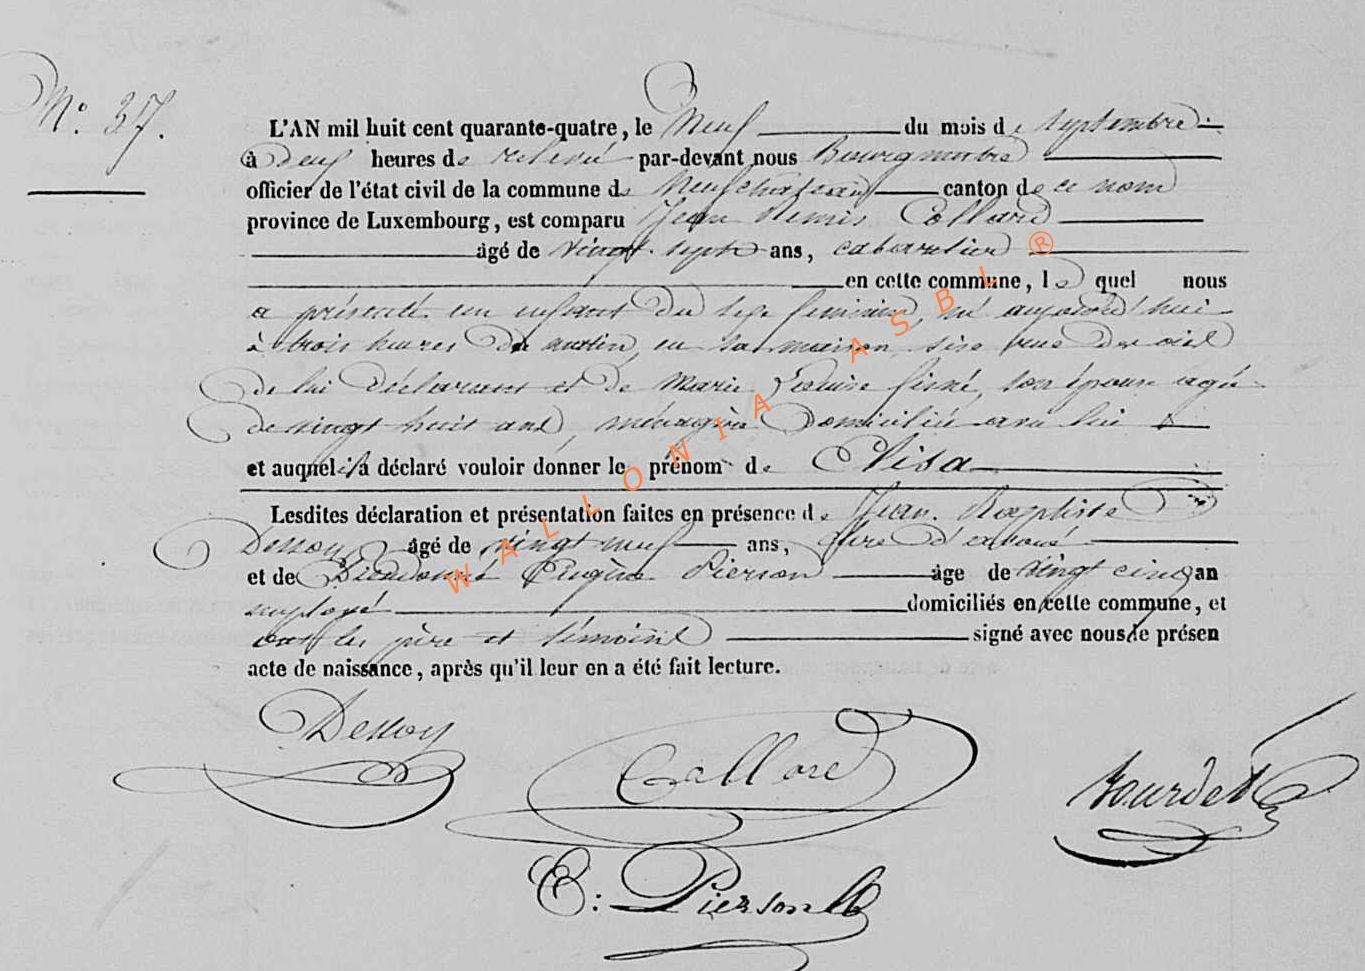 N.° 37.
L'AN mil huit cent quarante-quatre, le Neuf du mois de septembre
à deux heures de relevée par-devant nous Bourgmestre
officier de l'état civil de la commune de Neufchâteau canton de ce nom
province de Luxembourg, est comparu Jean Collard
âgé de vingt-sept ans, cabaretier
en cette commune, lequel nous
a présenté un enfant du sexe féminin, né aujourd'hui
à trois heures du matin, en sa maison sise rue
de lui déclarant et de Marie Louise son épouse agée
de vingt huit ans, ménagère domiciliée avec lui
et auquel il a déclaré vouloir donner le prénom de Elisa
Lesdites déclaration et présentation faites en présence de Jean Baptiste
Dessoy âgé de vingt neuf ans, clerc d'avoué
et de Dieudonné Eugène Pierson âge de vingt cinq an
employé domiciliés en cette commune, et
ont les père et témoins signé avec nous le présen
acte de naissance, après qu'il leur en a été fait lecture.
Dessoy
Collard
Bourdet
E: Pierson
WALLONIA ASBL ®